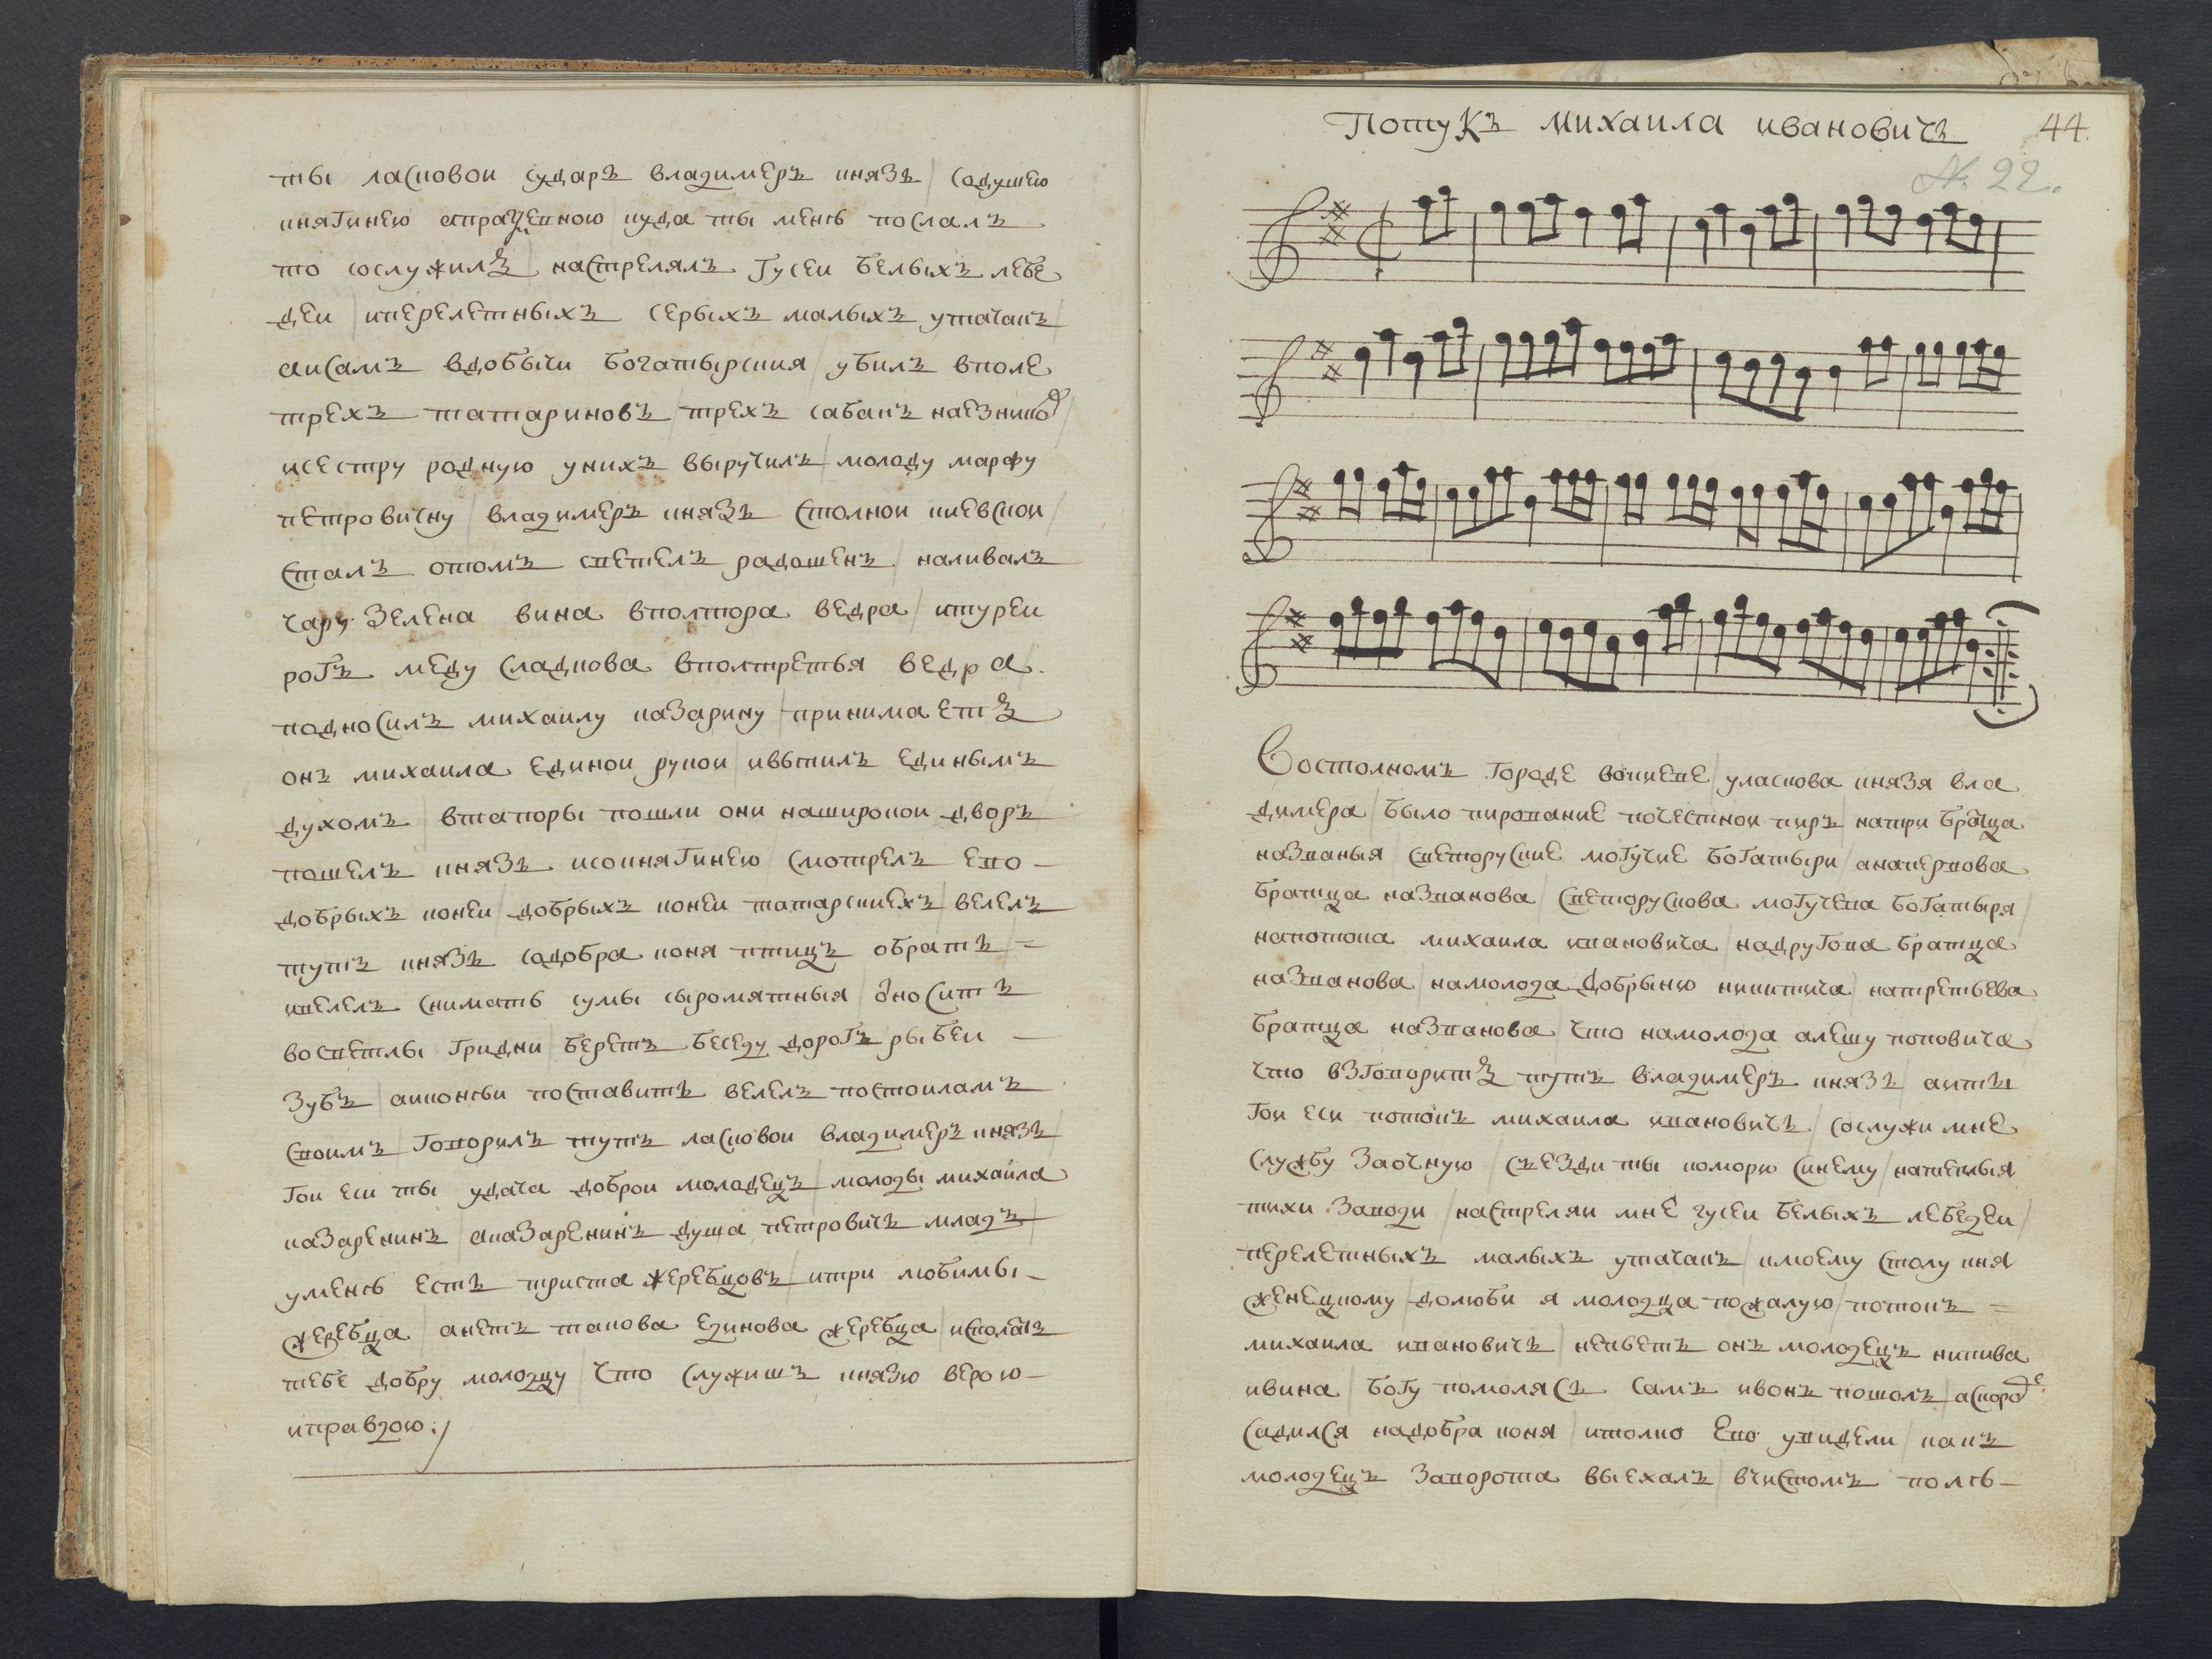 ты ласковои сударъ владимеръ князь содушею
княгинею апраѯевною куда ты меня послалъ
то сослужилъ настрелялъ гусеи белыхъ лебе
деи иперелетныхъ серыхъ малыхъ утачакъ
аисамъ вдобычи богатырския убилъ вполе
трехъ татариновъ трехъ сабакъ наезнико
исестру родную унихъ выручилъ молоду марфу
петровичну владимеръ князь столнои киевскои
сталъ отомъ светелъ радошенъ наливалъ
чару зелена вина вполтора ведра итуреи
рогъ меду сладкова вполтретья ведра.
подносилъ михаилу казарину принимаетъ
онъ михаила единои рукои ивыпилъ единымъ
духомъ втапоры пошли они наширокои дворъ
пошелъ князь исокнягинею смотрелъ ево
добрыхъ конеи добрыхъ конеи татарскиехъ велелъ
тутъ князь содобра коня птицъ обрать =
ивелелъ снимать сумы сыромятныя относить
восветлы гридни беретъ беседу дорогъ рыбеи
зубъ аиконьеи поставить велелъ постоиламъ
своимъ говорилъ тутъ ласковои владимеръ князь
гои еси ты удача доброи молодецъ молоды михаила
казаренинъ аказаренинъ душа петровичъ младъ
уменя есть триста жеребцовъ итри любимы
жеребца анетъ такова единова жеребца исполать
тебе добру молодцу что служишъ князю верою
иправдою:/
Потукъ михаила ивановичъ 44.
N. 22.
Востолномъ городе вокиеве уласкова князя вла
димера было пирование почестнои пиръ натри братца
названыя светоруские могучие богатыри анапервова
братца названова светорускова могучева богатыря
напотока михаила ивановича надругова братца
названова намолода добрыню никитича натретьева
братца названова что намолода алешу поповича
что взговоритъ тутъ владимеръ князь аиты
гои еси потокъ михаила ивановичъ сослужи мне
службу заочную съезди ты коморю синему натеплыя
тихи заводи настреляи мне гусеи белыхъ лебедеи
перелетныхъ малыхъ утачакъ кмоему столу кня
женецкому долюби я молодца пожалую потокъ =
михаила ивановичъ непьетъ онъ молодецъ нипива
ивина богу помолясь самъ ивонъ пошолъ аскоро де
садился надобра коня итолко ево увидели какъ
молодецъ заворота выехалъ вчистомъ поль